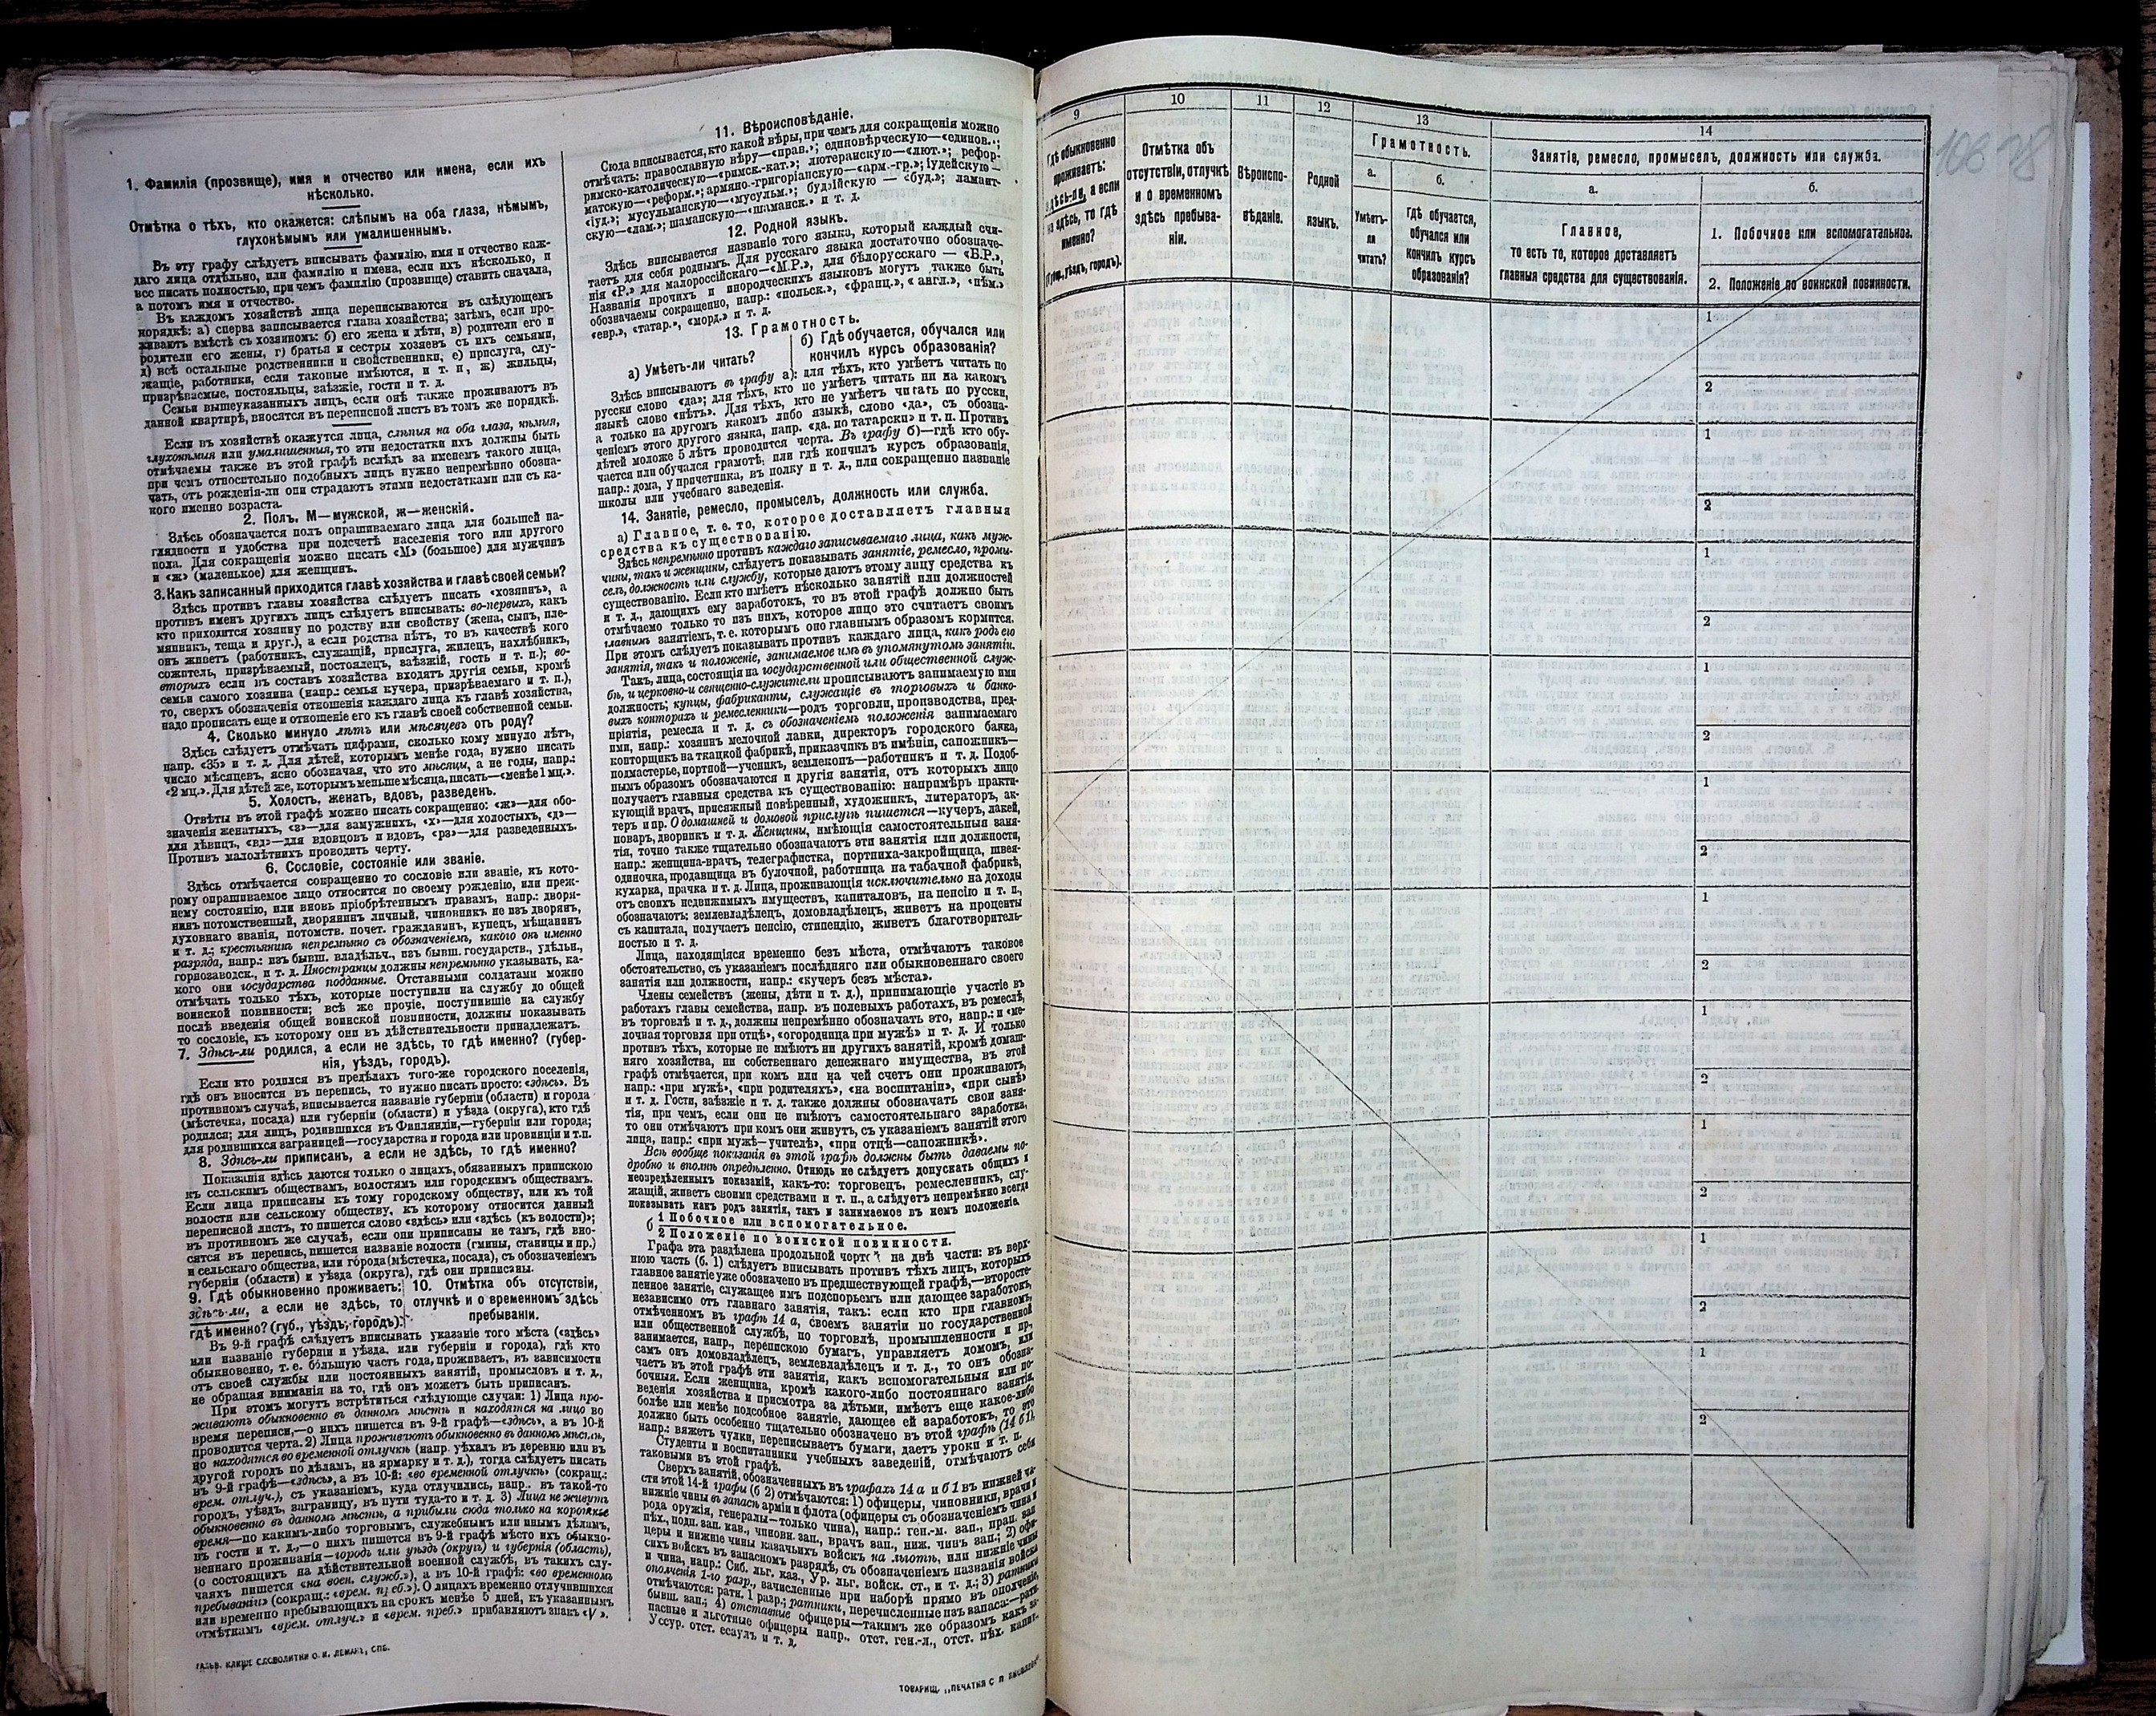 1. Фамилія (прозвище), имя и отчество или имена, если ихъ
нѣсколько.
Отмѣтка о тѣхъ, кто окажется: слѣпымъ на оба глаза, нѣмымъ,
глухонѣмымъ или умалишеннымъ.
Въ эту графу слѣдуетъ вписывать фамилію, имя и отчество каж-
даго лица отдѣльно, или фамилію и имена, если ихъ нѣсколько, и
все писать полностью, при чемъ фамилію (прозвище) ставить сначала,
а потомъ имя и отчество.
Въ каждомъ хозяйствѣ лица переписываются въ слѣдующемъ
порядкѣ: а) сперва записывается глава хозяйства; затѣмъ, если про-
живаютъ вмѣстѣ съ хозяиномъ: б) его жена и дѣти, в) родители его и
родители его жены, г) братья и сестры хозяевъ съ ихъ семьями,
д) всѣ остальные родственники и свойственники, е) прислуга, слу-
жащіе, работники, если таковые имѣются, и т. п., ж) жильцы,
призрѣваемые, постояльцы, заѣзжіе, гости и т. д.
Семьи вышеуказанныхъ лицъ, если онѣ также проживаютъ въ
данной квартирѣ, вносятся въ переписной листъ въ томъ же порядкѣ.
Если въ хозяйствѣ окажутся лица, слѣпыя на оба глаза, нѣмыя,
глухонѣмыя или умалишенныя, то эти недостатки ихъ должны быть
отмѣчаемы также въ этой графѣ вслѣдъ за именемъ такого лица,
при чемъ относительно подобныхъ лицъ нужно непремѣнно обозна-
чать, отъ рожденія-ли они страдаютъ этими недостатками или съ ка-
кого именно возраста.
2. Полъ. М—мужской, ж—женскій.
Здѣсь обозначается полъ опрашиваемаго лица для большей на-
глядности и удобства при подсчетѣ населенія того или другого
пола. Для сокращенія можно писать «М» (большое) для мужчинъ
и «ж» (маленькое) для женщинъ.
3. Какъ записанный приходится главѣ хозяйства и главѣ своей семьи?
Здѣсь противъ главы хозяйства слѣдуетъ писать «хозяинъ», а
противъ именъ другихъ лицъ слѣдуетъ вписывать: во-первыхъ, какъ
кто приходится хозяину по родству или свойству (жена, сынъ, пле-
мянникъ, теща и друг.), а если родства нѣтъ, то въ качествѣ кого
онъ живетъ (работникъ, служащій, прислуга, жилецъ, нахлѣбникъ,
сожитель, призрѣваемый, постоялецъ, заѣзжій, гость и т. п.); во-
вторыхъ если въ составъ хозяйства входятъ другія семьи, кромѣ
семьи самого хозяина (напр: семья кучера, призрѣваемаго и т. п.),
то, сверхъ обозначенія отношенія каждаго лица къ главѣ хозяйства,
надо прописать еще и отношеніе его къ главѣ своей собственной семьи.
4. Сколько минуло лѣтъ или мѣсяцевъ отъ роду?
Здѣсь слѣдуетъ отмѣчать цифрами, сколько кому минуло лѣтъ,
напр. «35» и т. д. Для дѣтей, которымъ менѣе года, нужно писать
число мѣсяцевъ, ясно обозначая, что это мѣсяцы, а не годы, напр.:
«2 мц.». Для дѣтей же, которымъ меньше мѣсяца, писать—«менѣе 1 мц.».
5. Холостъ, женатъ, вдовъ, разведенъ.
Отвѣты въ этой графѣ можно писать сокращенно: «ж»—для обо-
значенія женатыхъ, «з»—для замужнихъ, «х»—для холостыхъ, «д»—
для дѣвицъ, «вд»—для вдовцовъ и вдовъ, «рз»—для разведенныхъ.
Противъ малолѣтнихъ проводить черту.
6. Сословіе, состояніе или званіе.
Здѣсь отмѣчается сокращенно то сословіе или званіе, къ кото-
рому опрашиваемое лицо относится по своему рожденію, или преж-
нему состоянію, или вновь пріобрѣтеннымъ правамъ, напр.: дворя-
нинъ потомственный, дворянинъ личный, чиновникъ не изъ дворянъ,
духовнаго званія, потомств. почет. гражданинъ, купецъ, мѣщанинъ
и т. д.; крестьянинъ непремѣнно съ обозначеніемъ, какого онъ именно
разряда, напр.: изъ бывш. владѣльч., изъ бывш. государств., удѣльн.,
горнозаводск., и т. д. Иностранцы должны непремѣнно указывать, ка-
кого они государства подданные. Отставными солдатами можно
отмѣчать только тѣхъ, которые поступили на службу до общей
воинской повинности; всѣ же прочіе, поступившіе на службу
послѣ введенія общей воинской повинности, должны показывать
то сословіе, къ которому они въ дѣйствительности принадлежатъ.
7. Здѣсь-ли родился, а если не здѣсь, то гдѣ именно? (губер-
нія, уѣздъ, городъ).
Если кто родился въ предѣлахъ того-же городского поселенія,
гдѣ онъ вносится въ перепись, то нужно писать просто: «здѣсь». Въ
противномъ случаѣ, вписывается названіе губерніи (области) и города
(мѣстечка, посада) или губерніи (области) и уѣзда (округа), кто гдѣ
родился; для лицъ, родившихся въ Финляндіи,—губерніи или города;
для родившихся заграницей—государства и города или провинціи и т.п.
8. Здѣсь-ли приписанъ, а если не здѣсь, то гдѣ именно?
Показанія здѣсь даются только о лицахъ, обязанныхъ припискою
къ сельскимъ обществамъ, волостямъ или городскимъ обществамъ.
Если лица приписаны къ тому городскому обществу, или къ той
волости или сельскому обществу, къ которому относится данный
переписной листъ, то пишется слово «здѣсь» или «здѣсь (къ волости)»;
въ противномъ же случаѣ, если они приписаны не тамъ, гдѣ вно-
сятся въ перепись, пишется названіе волости (гмины, станицы и пр.)
и сельскаго общества, или города (мѣстечка, посада), съ обозначеніемъ
губерніи (области) и уѣзда (округа), гдѣ они приписаны.
9. Гдѣ обыкновенно проживаетъ:
здѣсь-ли, а если не здѣсь, то
гдѣ именно? (губ., уѣздъ, городъ).
10. Отмѣтка объ отсутствіи,
отлучкѣ и о временномъ здѣсь
пребываніи.
Въ 9-й графѣ слѣдуетъ вписывать указаніе того мѣста («здѣсь»
или названіе губерніи и уѣзда, или губерніи и города), гдѣ кто
обыкновенно, т. е. бо́льшую часть года, проживаетъ, въ зависимости
отъ своей службы или постоянныхъ занятій, промысловъ и т. д.,
не обращая вниманія на то, гдѣ онъ можетъ быть приписанъ.
При этомъ могутъ встрѣтиться слѣдующіе случаи: 1) Лица про-
живаютъ обыкновенно въ данномъ мѣстѣ и находятся на лицо во
время переписи,—о нихъ пишется въ 9-й графѣ—«здѣсь», а въ 10-й
проводится черта. 2) Лица проживаютъ обыкновенно въ данномъ мѣстѣ,
но находятся во временной отлучкѣ (напр. уѣхалъ въ деревню или въ
другой городъ по дѣламъ, на ярмарку и т. д.), тогда слѣдуетъ писать
въ 9-й графѣ—«здѣсь», а въ 10-й: «во временной отлучкѣ» (сокращ.:
врем. отлуч.), съ указаніемъ, куда отлучились, напр.. въ такой-то
городъ, уѣздъ, заграницу, въ пути туда-то и т. д. 3) Лица не живутъ
обыкновенно въ данномъ мѣстѣ, а прибыли сюда только на короткое
время—по какимъ-либо торговымъ, служебнымъ или инымъ дѣламъ,
въ гости и т. д.,—о нихъ пишется въ 9-й графѣ мѣсто ихъ обыкно-
веннаго проживанія—городъ или уѣздъ (округъ) и губернія (область),
(о состоящихъ на дѣйствительной военной службѣ, въ такихъ слу-
чаяхъ пишется «на воен. служб.»), а въ 10-й графѣ: «во временномъ
пребываніи» (сокращ.: «врем. преб.»). О лицахъ временно отлучившихся
или временно пребывающихъ на срокъ менѣе 5 дней, къ указаннымъ
отмѣткамъ «врем. отлуч.» и «врем. преб.» прибавляютъ знакъ «V».
ГАЛЬВ. КЛИШЕ СЛОВОЛИТНИ О. И. ЛЕМАНЪ, СПБ.
11. Вѣроисповѣданіе.
Сюда вписывается, кто какой вѣры, при чемъ для сокращенія можно
отмѣчать: православную вѣру—«прав.»; единовѣрческую—«единов.»;
римско-католическую—«римск.-кат.»; лютеранскую—«лют.»; рефор-
матскую—«реформ.»; армяно-григоріанскую—«арм.-гр.»; іудейскую—
«іуд.»; мусульманскую—«мусульм.»; буддійскую — «буд.»; ламаит-
скую—«лам.»; шаманскую—«шаманск.» и т. д.
12. Родной языкъ.
Здѣсь вписывается названіе того языка, который каждый счи-
таетъ для себя роднымъ. Для русскаго языка достаточно обозначе-
нія «Р.» для малороссійскаго—«М.Р.», для бѣлорусскаго — «Б.Р.»,
Названія прочихъ и инородческихъ языковъ могутъ также быть
обозначаемы сокращенно, напр.: «польск.», «франц.», «англ.», «нѣм.»
«евр.», «татар.», «морд.» и т. д.
13. Грамотность.
а) Умѣетъ-ли читать?
б) Гдѣ обучается, обучался или
кончилъ курсъ образованія?
Здѣсь вписываютъ въ графу а): для тѣхъ, кто умѣетъ читать по
русски слово «да»; для тѣхъ, кто не умѣетъ читать ни на какомъ
языкѣ слово «нѣтъ». Для тѣхъ, кто не умѣетъ читать по русски,
а только на другомъ какомъ либо языкѣ, слово «да», съ обозна-
ченіемъ этого другого языка, напр. «да, по татарски» и т. п. Противъ
дѣтей моложе 5 лѣтъ проводится черта. Въ графу б)—гдѣ кто обу-
чается или обучался грамотѣ, или гдѣ кончилъ курсъ образованія,
напр.: дома, у причетника, въ полку и т. д., или сокращенно названіе
школы или учебнаго заведенія.
14. Занятіе, ремесло, промыселъ, должность или служба.
а) Главное, т. е. то, которое доставляетъ главныя
средства къ существованію.
Здѣсь непремѣнно противъ каждаго записываемаго лица, какъ муж-
чины, такъ и женщины, слѣдуетъ показывать занятіе, ремесло, промы-
селъ, должность или службу, которые даютъ этому лицу средства къ
существованію. Если кто имѣетъ нѣсколько занятій или должностей
и т. д., дающихъ ему заработокъ, то въ этой графѣ должно быть
отмѣчаемо только то изъ нихъ, которое лицо это считаетъ своимъ
главнымъ занятіемъ, т. е. которымъ оно главнымъ образомъ кормится.
При этомъ слѣдуетъ показывать противъ каждаго лица, какъ родъ его
занятія, такъ и положеніе, занимаемое имъ въ упомянутомъ занятіи.
Такъ, лица, состоящія на государственной или общественной служ-
бѣ, и церковно-и священно-служители прописываютъ занимаемую ими
должность; купцы, фабриканты, служащіе въ торговыхъ и банко-
выхъ конторахъ и ремесленники—родъ торговли, производства, пред-
пріятія, ремесла и т. д. съ обозначеніемъ положенія занимаемаго
ими, напр.: хозяинъ мелочной лавки, директоръ городского банка,
конторщикъ на ткацкой фабрикѣ, приказчикъ въ имѣніи, сапожникъ—
подмастерье, портной—ученикъ, землекопъ—работникъ и т. д. Подоб-
нымъ образомъ обозначаются и другія занятія, отъ которыхъ лицо
получаетъ главныя средства къ существованію: напримѣръ практи-
кующій врачъ, присяжный повѣренный, художникъ, литераторъ, ак-
теръ и пр. О домашней и домовой прислугѣ пишется—кучеръ, лакей,
поваръ, дворникъ и т. д. Женщины, имѣющія самостоятельныя заня-
тія, точно также тщательно обозначаютъ эти занятія или должности,
напр.: женщина-врачъ, телеграфистка, портниха-закройщица, швея-
одиночка, продавщица въ булочной, работница на табачной фабрикѣ,
кухарка, прачка и т. д. Лица, проживающія исключительно на доходы
отъ своихъ недвижимыхъ имуществъ, капиталовъ, на пенсію и т. п.,
обозначаютъ: землевладѣлецъ, домовладѣлецъ, живетъ на проценты
съ капитала, получаетъ пенсію, стипендію, живетъ благотворитель-
ностью и т. д.
Лица, находящіяся временно безъ мѣста, отмѣчаютъ таковое
обстоятельство, съ указаніемъ послѣдняго или обыкновеннаго своего
занятія или должности, напр.: «кучеръ безъ мѣста».
Члены семействъ (жены, дѣти и т. д.), принимающіе участіе въ
работахъ главы семейства, напр. въ полевыхъ работахъ, въ ремеслѣ,
въ торговлѣ и т. д., должны непремѣнно обозначать это, напр.: и «ме-
лочная торговля при отцѣ», «огородница при мужѣ» и т. д. И только
противъ тѣхъ, которые не имѣютъ ни другихъ занятій, кромѣ домаш-
няго хозяйства, ни собственнаго денежнаго имущества, въ этой
графѣ отмѣчается, при комъ или на чей счетъ они проживаютъ,
напр.: «при мужѣ», «при родителяхъ», «на воспитаніи», «при сынѣ»
и т. д. Гости, заѣзжіе и т. д. также должны обозначать свои заня-
тія, при чемъ, если они не имѣютъ самостоятельнаго заработка,
то они отмѣчаютъ при комъ они живутъ, съ указаніемъ занятій этого
лица, напр.: «при мужѣ—учителѣ», «при отцѣ—сапожникѣ».
Всѣ вообще показанія въ этой графѣ должны быть даваемы по-
дробно и вполнѣ опредѣленно. Отнюдь не слѣдуетъ допускать общихъ и
неопредѣленныхъ показаній, какъ-то: торговецъ, ремесленникъ, слу-
жащій, живетъ своими средствами и т. п., а слѣдуетъ непремѣнно всегда
показывать какъ родъ занятія, такъ и занимаемое въ немъ положеніе.
б 1 Побочное или вспомогательное.
2 Положеніе по воинской повинности.
Графа эта раздѣлена продольной чертой на двѣ части: въ верх-
нюю часть (б. 1) слѣдуетъ вписывать противъ тѣхъ лицъ, которыхъ
главное занятіе уже обозначено въ предшествующей графѣ,—второсте-
пенное занятіе, служащее имъ подспорьемъ или дающее заработокъ,
независимо отъ главнаго занятія, такъ: если кто при главномъ,
отмѣченномъ въ графѣ 14 а, своемъ занятіи по государственной
или общественной службѣ, по торговлѣ, промышленности и пр,
занимается, напр., перепискою бумагъ, управляетъ домомъ, или
самъ онъ домовладѣлецъ, землевладѣлецъ и т. д., то онъ обозна-
чаетъ въ этой графѣ эти занятія, какъ вспомогательныя или по-
бочныя. Если женщина, кромѣ какого-либо постояннаго занятія,
веденія хозяйства и присмотра за дѣтьми, имѣетъ еще какое-либо
болѣе или менѣе подсобное занятіе, дающее ей заработокъ, то это
должно быть особенно тщательно обозначено въ этой графѣ (14 б 1),
напр.: вяжетъ чулки, переписываетъ бумаги, даетъ уроки и т. п.
Студенты и воспитанники учебныхъ заведеній, отмѣчаютъ себя
таковыми въ этой графѣ.
Сверхъ занятій, обозначенныхъ въ графахъ 14 а и б 1 въ нижней ча-
сти этой 14-й графы (б 2) отмѣчаются: 1) офицеры, чиновники, врачи и
нижніе чины въ запасѣ арміи и флота (офицеры съ обозначеніемъ чина и
рода оружія, генералы—только чина), напр.: ген.-м. зап., прап. зап.
пѣх., подп. зап. кав., чиновн. зап., врачъ зап., ниж. чинъ зап.; 2) офи-
церы и нижніе чины казачьихъ войскъ на льготѣ, или нижніе чины
сихъ войскъ въ запасномъ разрядѣ, съ обозначеніемъ названія войска
и чина, напр.: Сиб. льг. каз., Ур. льг. войск. ст., и т. д.; 3) ратники
ополченія 1-го разр., зачисленные при наборѣ прямо въ ополченіе,
отмѣчаются: ратн. 1 разр.; ратники, перечисленные изъ запаса:—ратн.
бывш. зап.; 4) отставные офицеры—такимъ же образомъ какъ за-
пасные и льготные офицеры напр.. отст. ген.-л., отст. пѣх. капит.
Уссур. отст. есаулъ и т. д.
ТОВАРИЩ. „ПЕЧАТНЯ С. П. ЯКОВЛЕВА“
106 78
9
10
11
12
13
14
Гдѣ обыкновенно
проживаетъ:
здѣсь-ли, а если
не здѣсь, то гдѣ
именно?
(Губ., уѣздъ, городъ).
Отмѣтка объ
отсутствіи, отлучкѣ
и о временномъ
здѣсь пребыва-
ніи.
Вѣроиспо-
вѣданіе.
Родной
языкъ.
Грамотность.
а.
Умѣетъ-
ли
читать?
б.
Гдѣ обучается,
обучался или
кончилъ курсъ
образованія?
Занятіе, ремесло, промыселъ, должность или служба.
а.
Главное,
то есть то, которое доставляетъ
главныя средства для существованія.
б.
1. Побочное или вспомогательное.
2. Положеніе по воинской повинности.
1
2
1
2
1
2
1
2
1
2
1
2
1
2
1
2
1
2
1
2